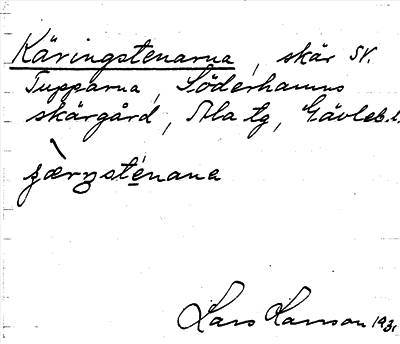 Käringstenarna, skär SV.
Tupparna, Söderhamns
skärgård, Ala tg, Gävleb. l.
ʂæ̀rŋsté̱nana
Lars Larsson 1931